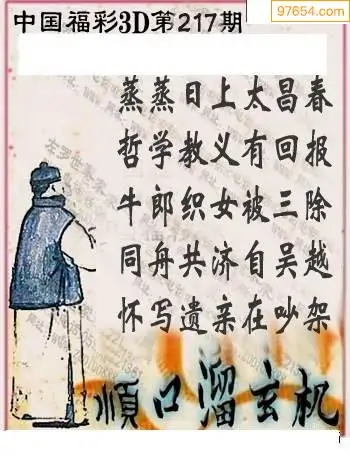 97654.com
中国福彩3D第217期
蒸蒸日上太昌春
哲学教义有回报
牛郎织女被三除
同舟共济自吴越
怀写遗亲在吵架
顺口溜玄机